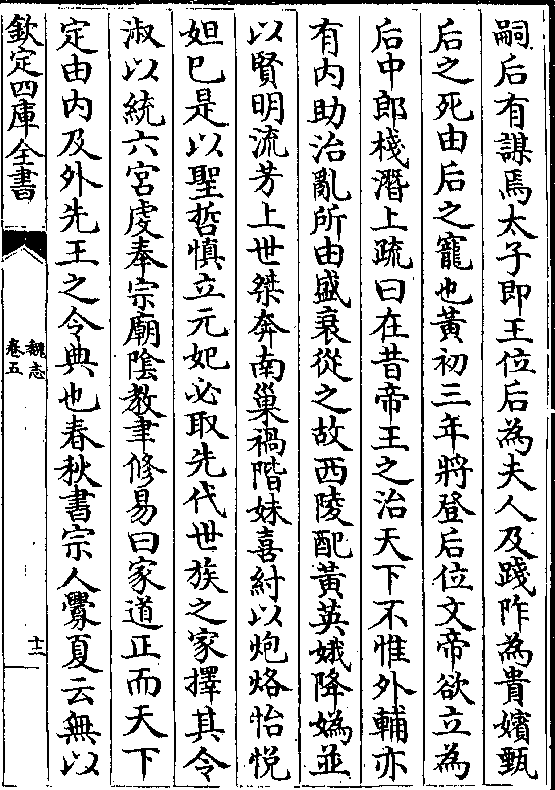 嗣后有謀焉太子即王位后為夫人及踐阼為貴嬪甄
后之死由后之寵也黃初三年將登后位文帝欲立為
后中郎棧潛上疏曰在昔帝王之治天下不惟外輔亦
有内助治亂所由盛衰從之故西陵配黃英娥降媯並
以賢明流芳上世桀奔南巢禍階妹喜紂以炮烙怡悦
妲己是以聖哲慎立元妃必取先代世族之家擇其令
淑以統六宮虔奉宗廟陰教聿修易曰家道正而天下
定由内及外先王之令典也春秋書宗人釁夏云無以
欽定四庫全書
魏志
卷五
十二